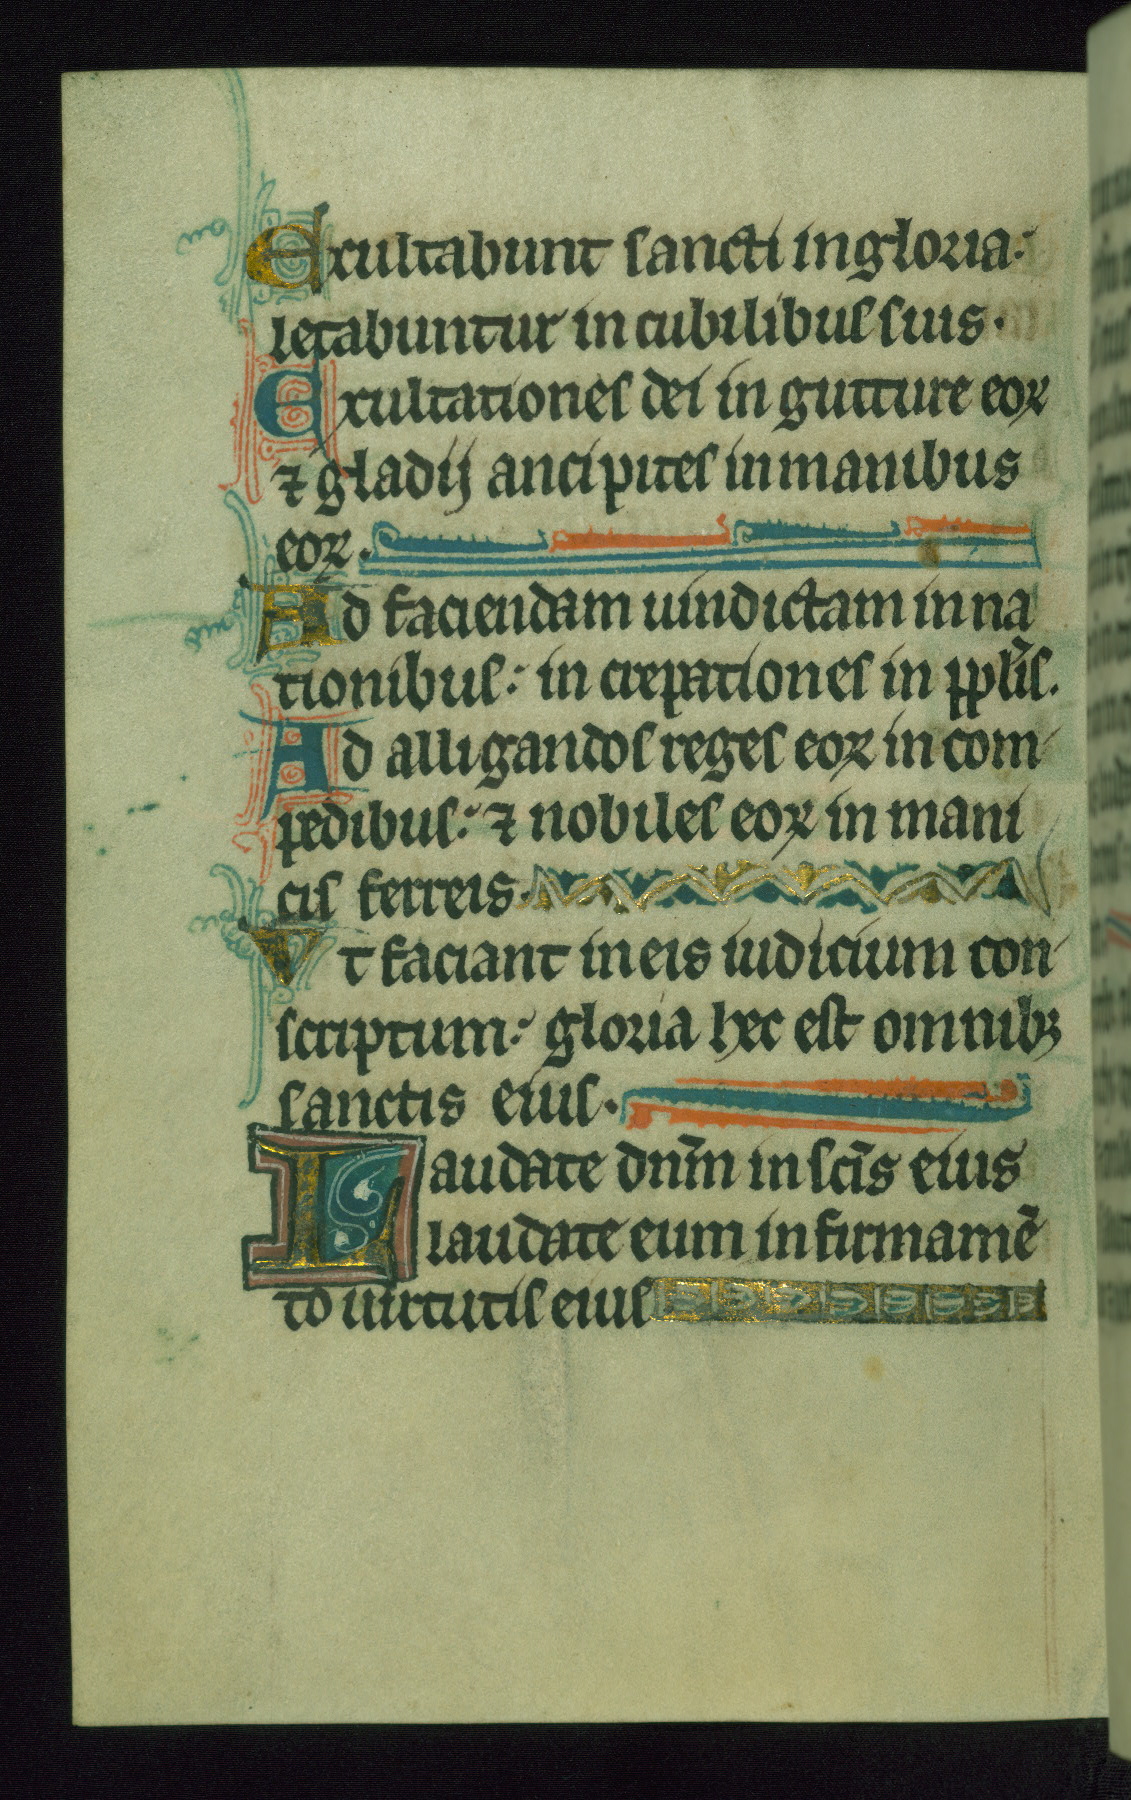 Exultabunt sancti in gloria:
letabuntur in cubilibus suis.
Exultationes dei in gutture eoꝝ
⁊ gladij ancipites in manibus
eoꝝ.
Ad faciendam uindictam in na
tionibus: increpationes in pplĩs.
Ad alligandos reges eoꝝ in com-
pedibus: ⁊ nobiles eoꝝ in mani
cis ferreis.
Vt faciant in eis iudicium con-
scriptum: gloria hec est omnibꝫ
sanctis eius.
Laudate dnm̃ in scĩs eius
laudate eum in firmamẽ
to uirtutis eius